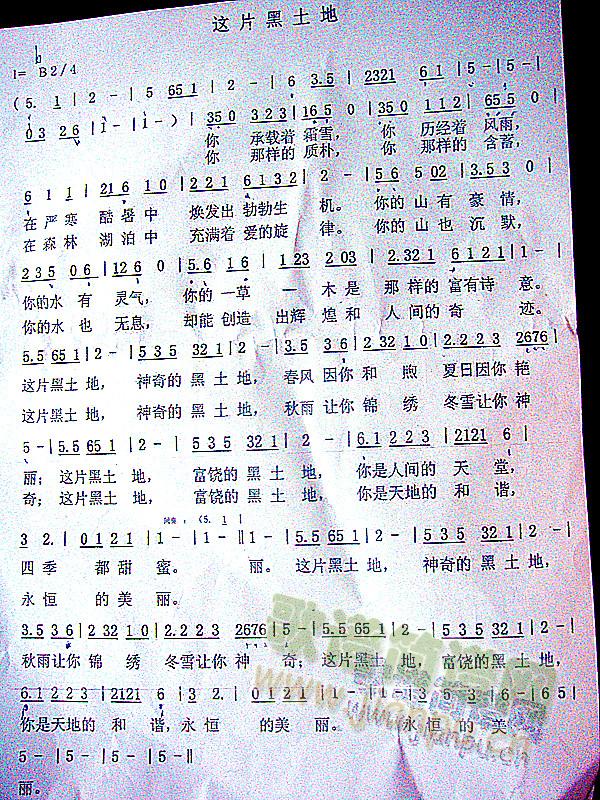 这片黑土地
1= bB 2/4
( 5. 1 | 2 - | 5 651 | 2 - | 6 3.5 | 2321 6 1 | 5 - | 5 - |
0 3 2 6 | 1 - | 1 - ) | 350 323 | 165 0 | 350 112 | 655 0 |
你 承载着 霜雪, 你 历经着 风雨,
你 那样的 质朴, 你 那样的 含蓄,
6 1 1 | 216 10 | 221 6132 | 2 - | 56 502 | 3.53 0 |
在严寒 酷暑中 焕发出 勃勃生 机。 你的山有豪情,
在森林 湖泊中 充满着 爱的旋 律。 你的山也沉默,
235 06 | 126 0 | 5.6 16 | 123 203 | 2.321 6121 | 1 - |
你的水 有 灵气, 你的一草 一 木是 那样的富有诗 意。
你的水 也 无息, 却能创造 出辉 煌和 人间的奇 迹。
5.5 651 | 2 - | 535 321 | 2 - | 3.5 36 | 232 10 | 2.223 2676 |
这片黑土 地, 神奇的 黑土 地, 春风因你和 煦 夏日因你艳
这片黑土 地, 神奇的 黑土 地, 秋雨让你锦 绣 冬雪让你神
5 - | 5.5 651 | 2 - | 535 321 | 2 - | 6.1 223 | 2121 6 |
丽; 这片黑土 地, 富饶的 黑土 地, 你是人间的 天 堂,
奇; 这片黑土 地, 富饶的 黑土 地, 你是天地的 和 谐,
(5. 1 |
3 2. | 0121 | 1 - | 1 - ‖ 1 - | 5.5 651 | 2 - | 535 321 | 2 - |
四季 都甜 蜜。 丽。 这片黑土 地, 神奇的 黑土 地,
永恒 的美 丽。
3.5 36 | 232 10 | 2.223 2676 | 5 - | 5.5 651 | 2 - | 535 321 | 2 - |
秋雨让你 锦 绣 冬雪让你 神 奇; 这片黑土 地, 富饶的黑土 地,
6.1 223 | 2121 6 | 3 2. | 0121 | 1 - | 1 - | 3 2 | 5 - | 6 - | 65 |
你是天地的 和 谐, 永恒 的美 丽。 永恒 的 美
5 - | 5 - | 5 - | 5 - ‖
丽。